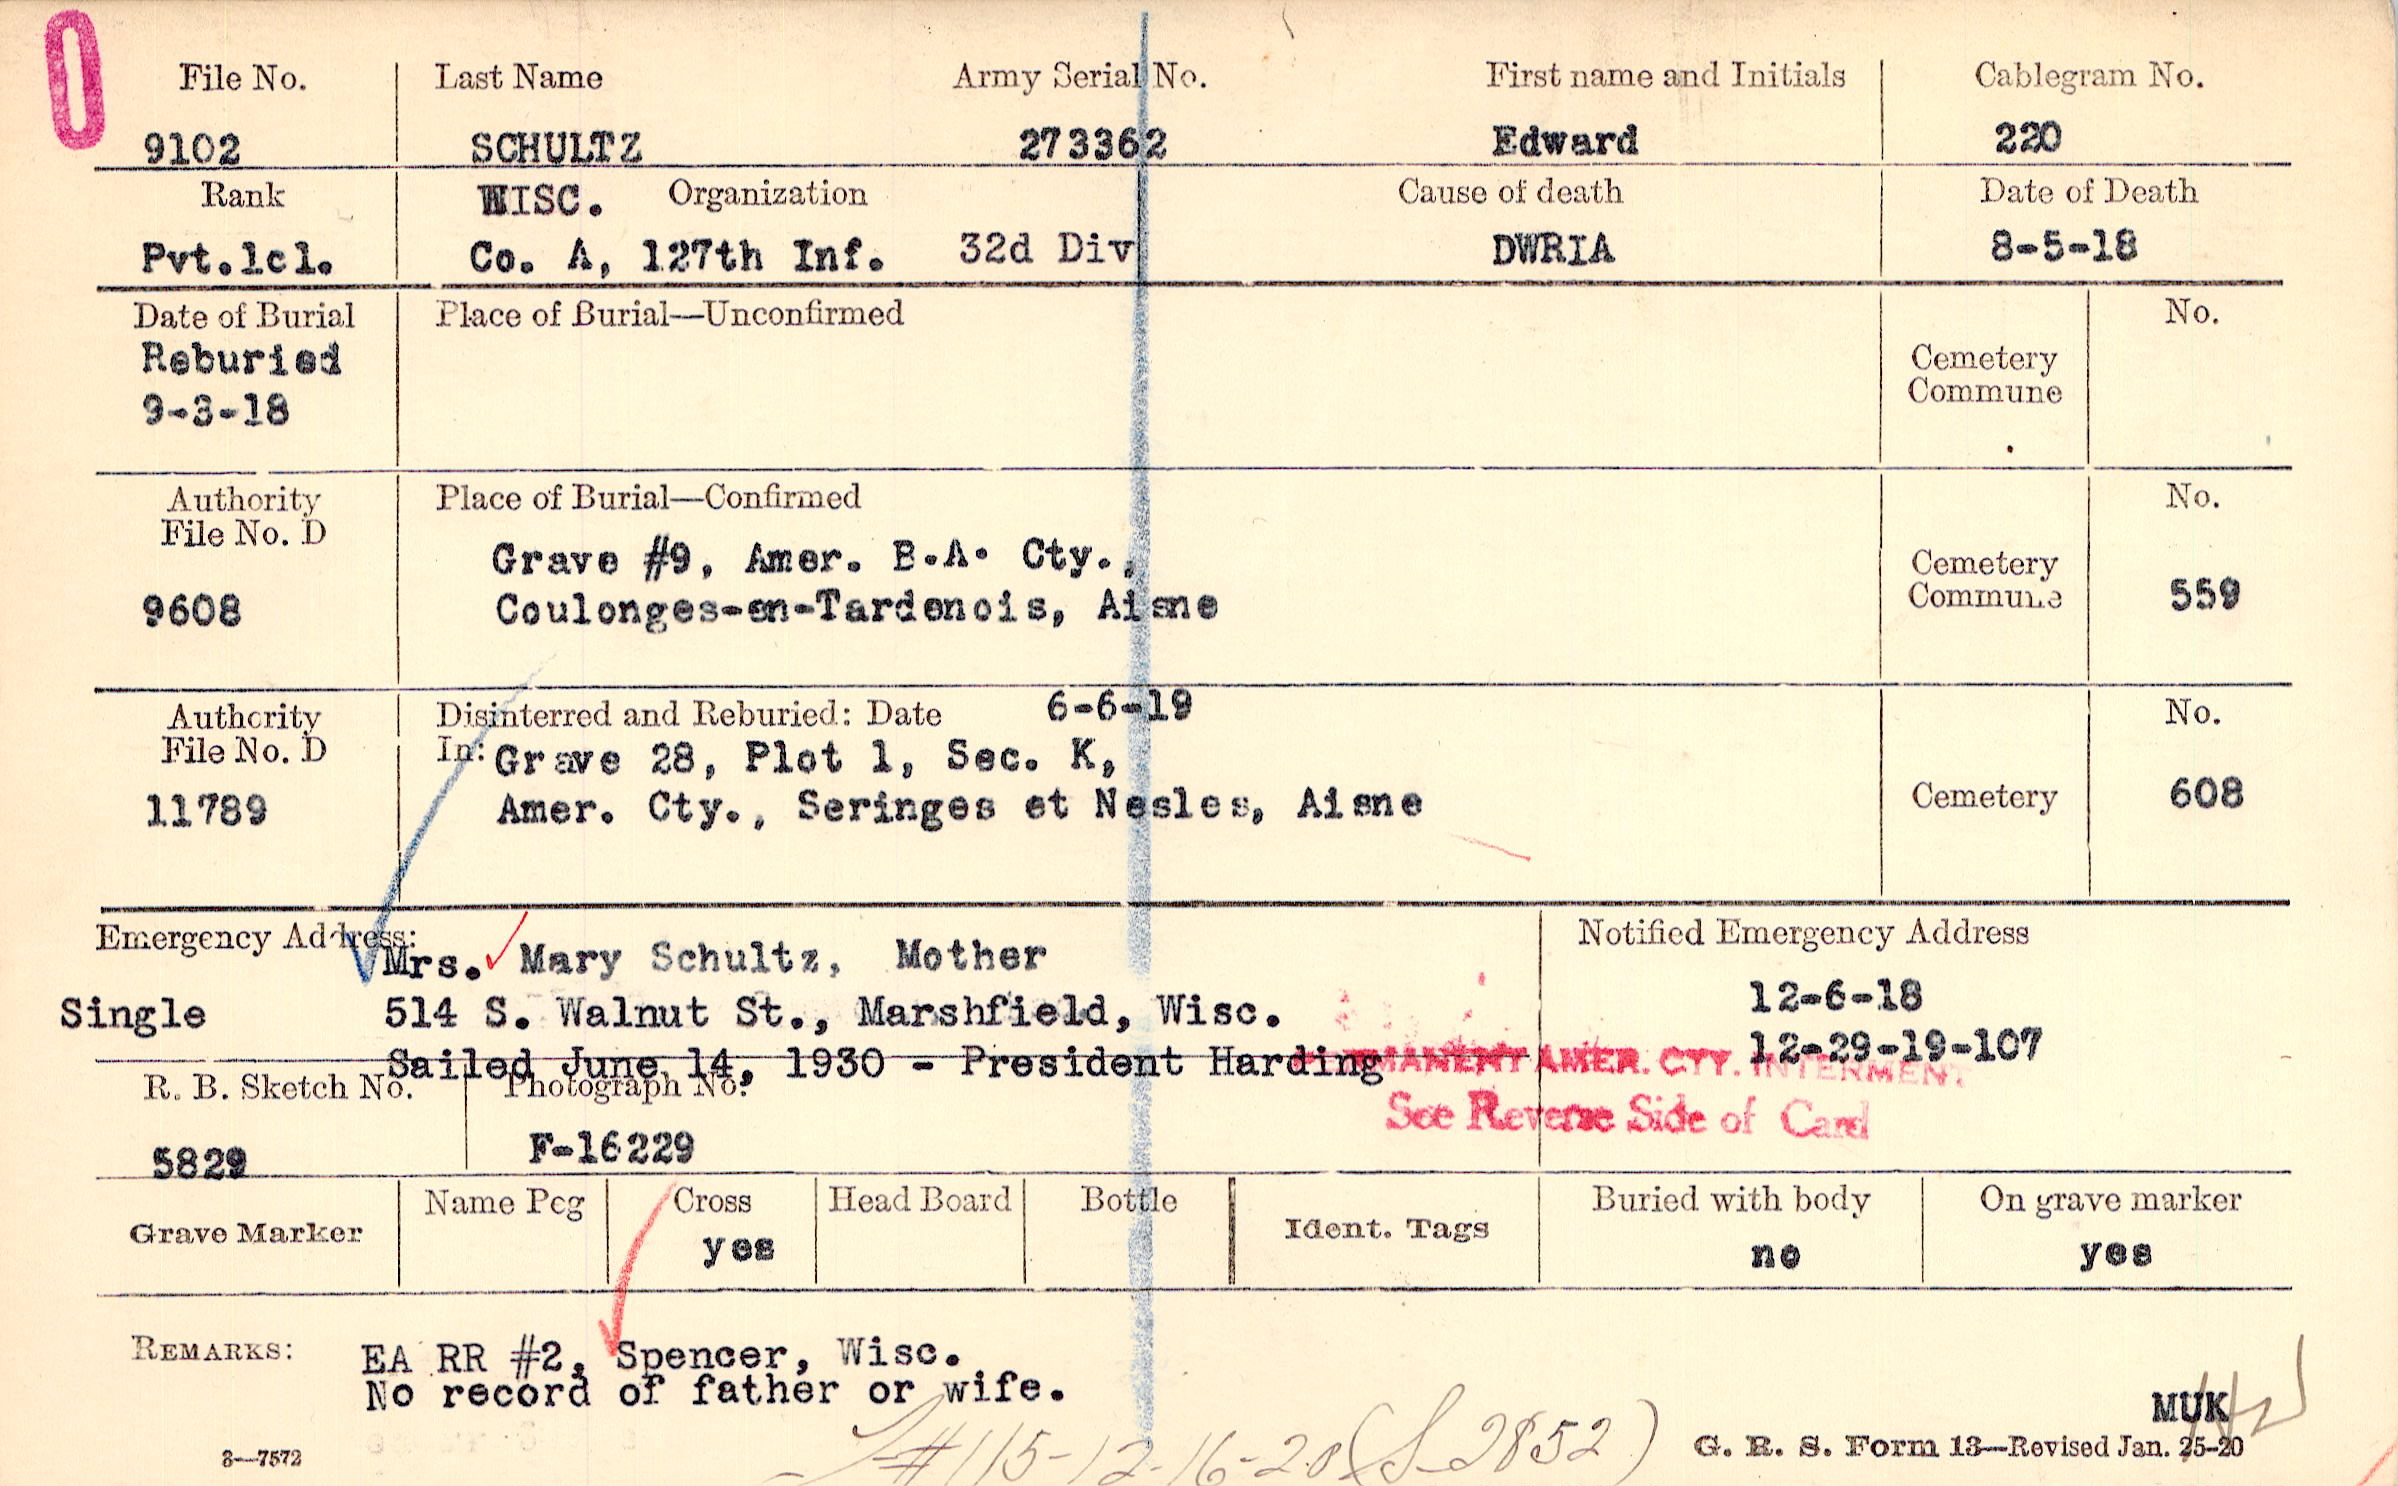 File No. Last Name Army Serial No. First name and Initials Cablegram No.
9102 SCHULTZ 273362 Edward 220
Rank WISC. Organization Cause of death Date of Death
Pvt.1cl. Co. A, 127th Inf. 32d Div DWRIA 8-5-18
Date of Burial Place of Burial—Unconfirmed No.
Reburied Cemetery
9-3-18 Commune
Authority Place of Burial—Confirmed No.
File No. D Grave #9, Amer. B.A. Cty., Cemetery
9608 Coulonges-en-Tardenois, Aisne Commune 559
Authority Disinterred and Reburied: Date 6-6-19 No.
File No. D In: Grave 28, Plot 1, Sec. K,
11789 Amer. Cty., Seringes et Nesles, Aisne Cemetery 608
Emergency Address: Mrs. Mary Schultz, Mother Notified Emergency Address
Single 514 S. Walnut St., Marshfield, Wisc. 12-6-18
Sailed June 14, 1930 - President Harding 12-29-19-107
PERMANENT AMER. CTY. INTERMENT
See Reverse Side of Card
R. B. Sketch No. Photograph No.
5829 F-16229
Grave Marker Name Peg Cross Head Board Bottle Ident. Tags Buried with body On grave marker
yes no yes
REMARKS: EA RR #2, Spencer, Wisc.
No record of father or wife.
MUK
#115-12-16-20 (S-2852)
3—7572 G. R. S. Form 13—Revised Jan. 25-20